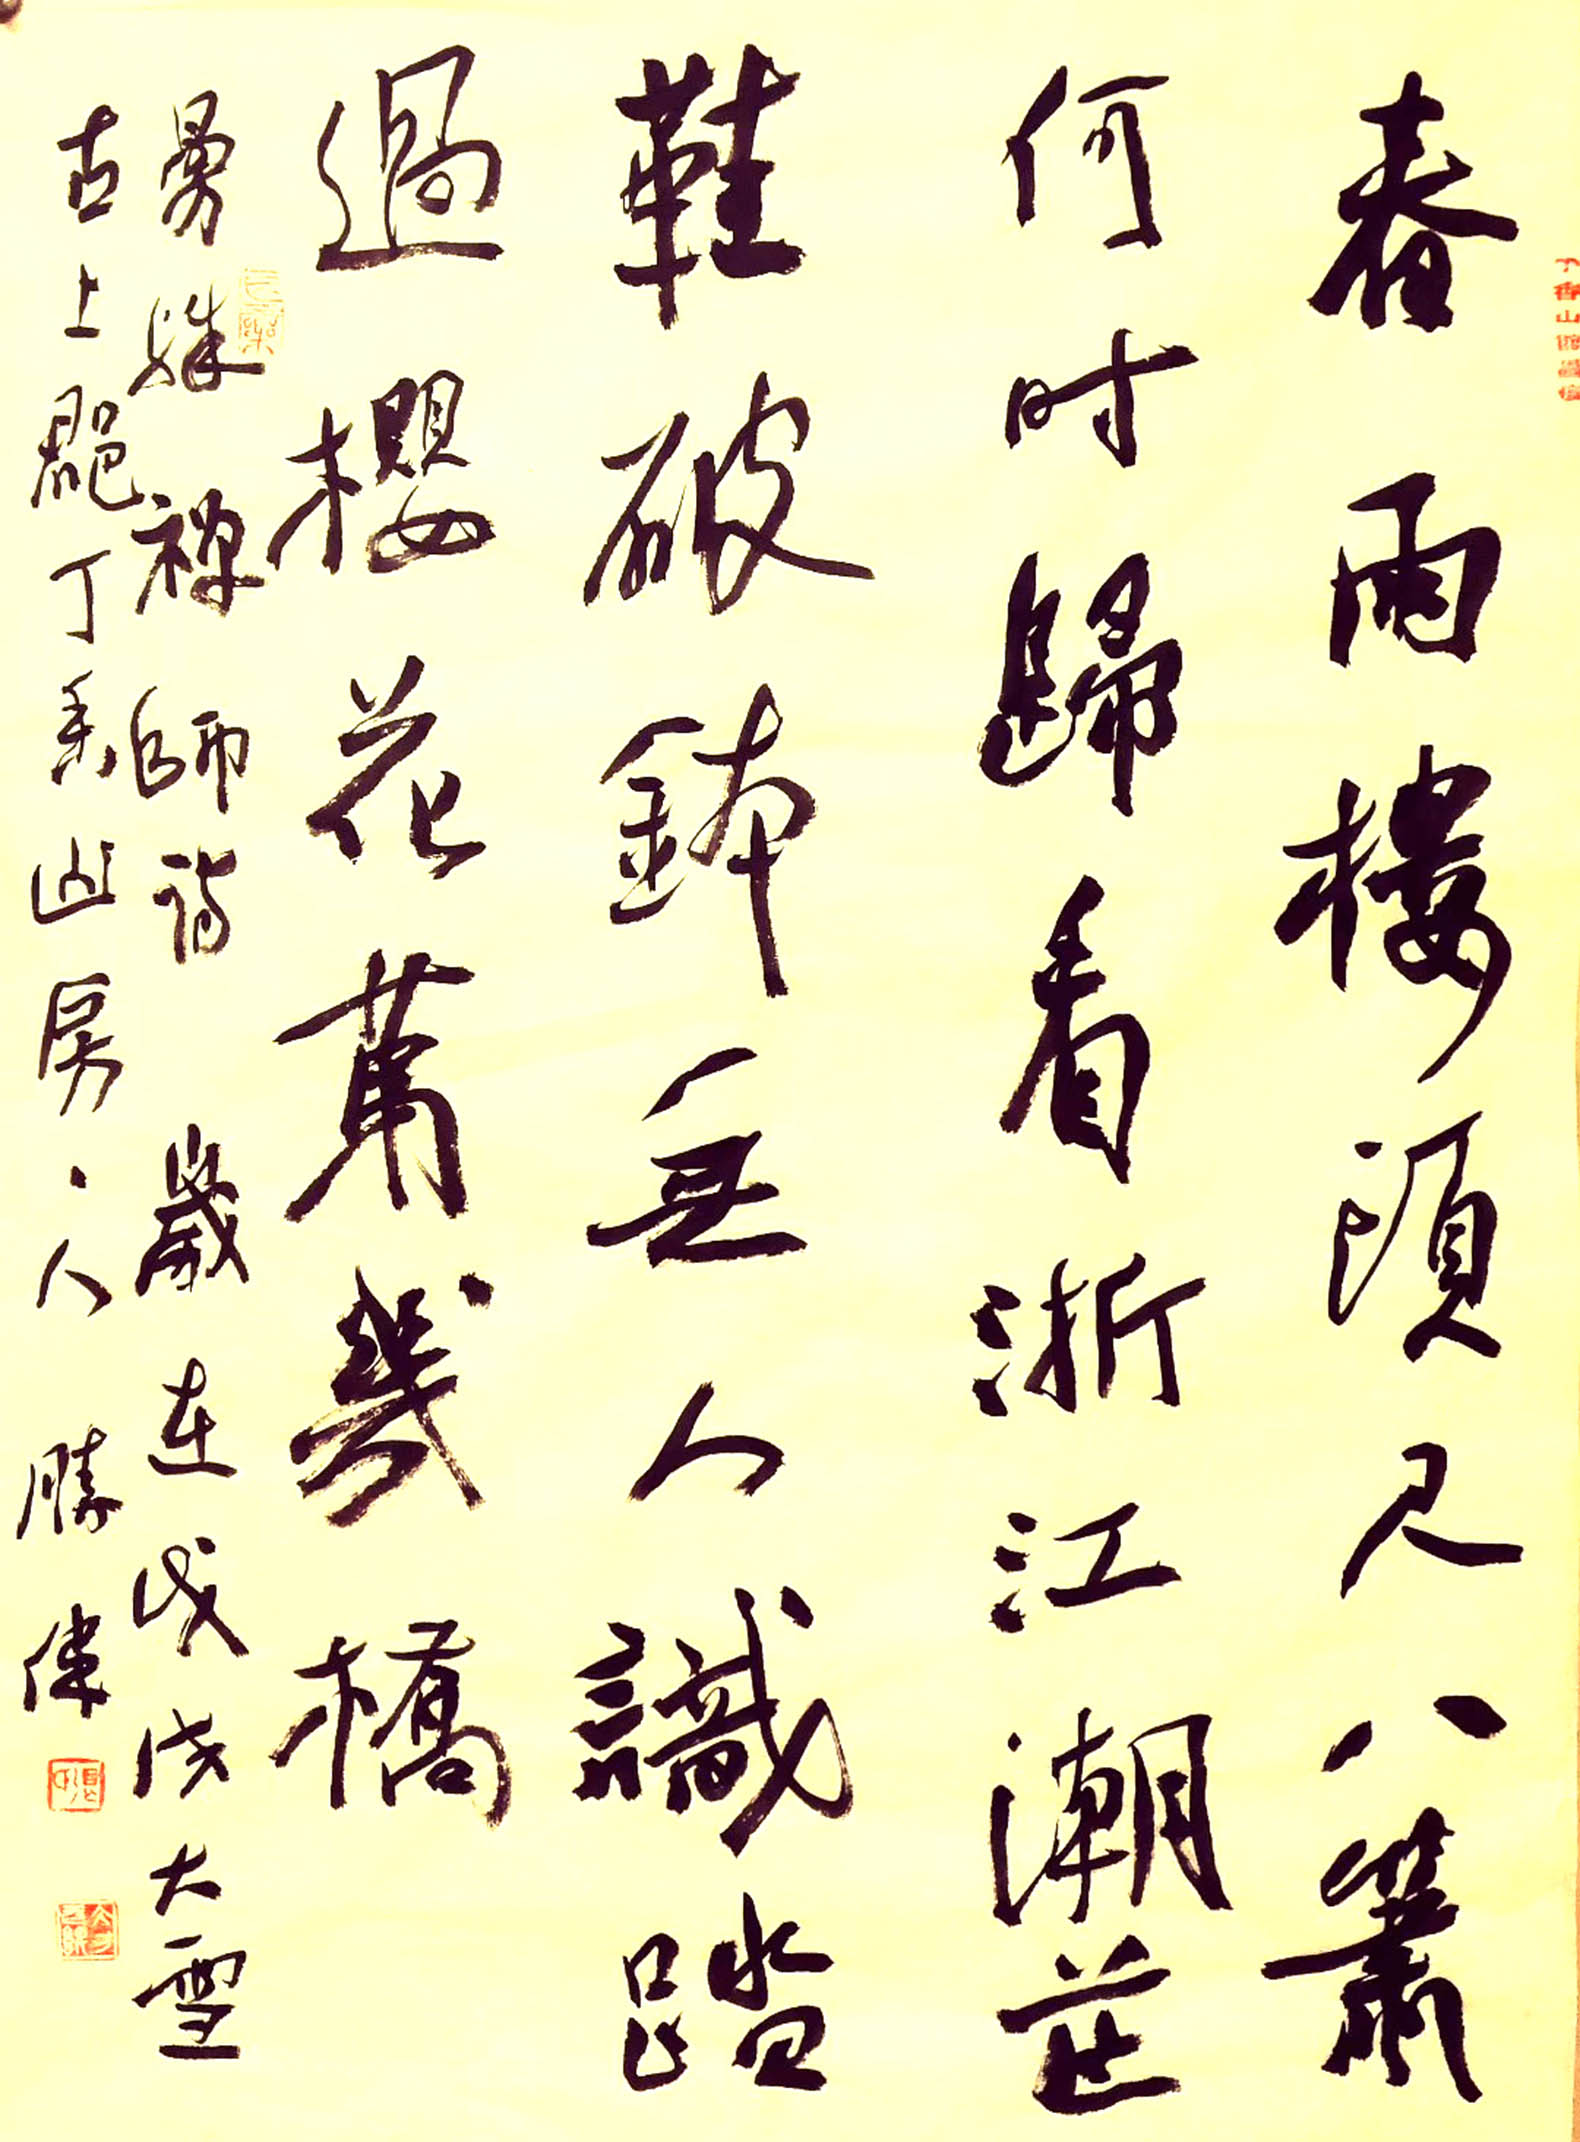 春雨樓頭尺八簫
何时歸看浙江潮芒
鞋破鉢無人識踏
過櫻花苐幾橋
曼殊禅師詩 歲在戊戌大雪
古上郡丁香山房人 勝偉